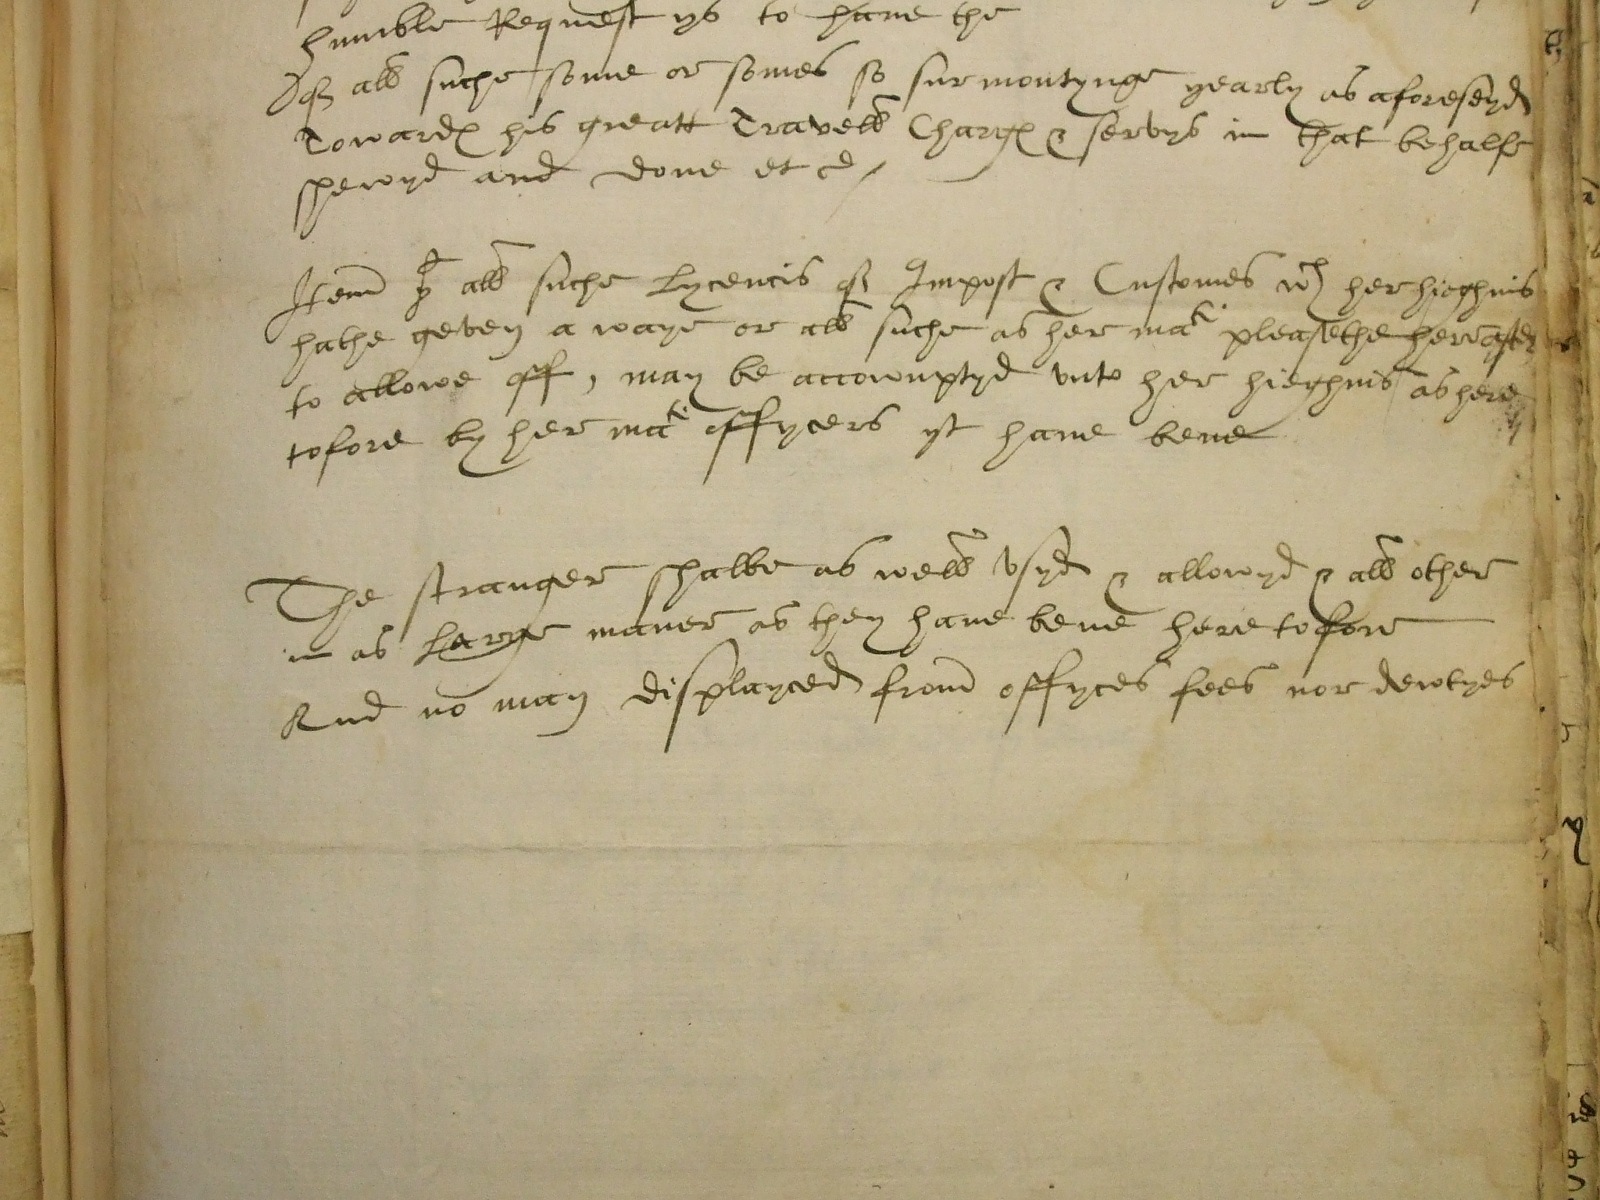 humble Request ys to have the
of all suche some or somes so surmontynge yearly as aforeseyd
Towards his greatt Travell Charges & servys in that behalfe
shewyd and done et c
Item yt all suche lycencis of Impost & Customes wch her hieghnis
hathe geven a waye or all suche as her matie pleasethe hereafter
to allowe off, may be accowmptyd vnto her hieghnis as here
tofore by her maties offycers yt have bene
The stranger shalbe as well vsyd & allowyd & all other
in as large maner as they have bene here tofore
And no man displayced from offyces fees nor dewtyes